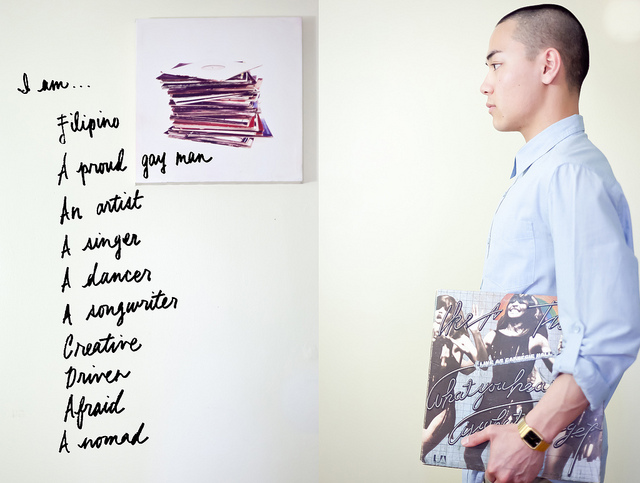 I am...
Filipino
A proud gay man
An artist
A singer
A dancer
A songwriter
Creative
Driven
Afraid
A nomad
Like A
What you hea